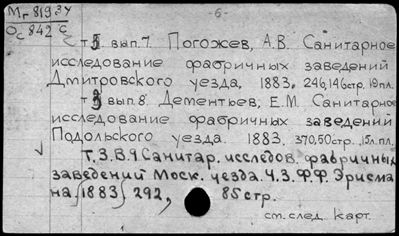 Мг 819 34
Ос 842 с
-6-
т 3. вып. 7. Погожев, А.В. Санитарное
исследование фабричных заведений
Дмитровского уезда, 1883. 246,146стр. 19пл.
т 3 вып. 8. Дементьев, Е.М. Санитарное
исследование фабричных заведений
Подольского уезда. 1883. 370,50стр., 15л.пл.
Т.3.В.9.Санитар. исследов. фабричных
заведений Моск. уезда. Ч.3. Ф.Ф. Эрисма
на 1883 292, 85стр.
см. след. карт.